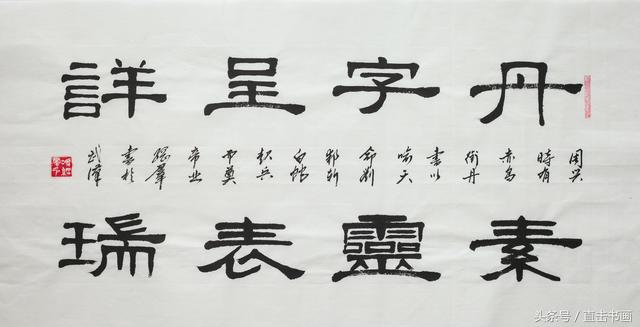 丹字呈詳
周兴
時有
赤烏
銜丹
書以
喻天
命劉
邦斬
白蛇
起兵
帝业
書於
武漢
素靈表瑞
头条号／直击书画